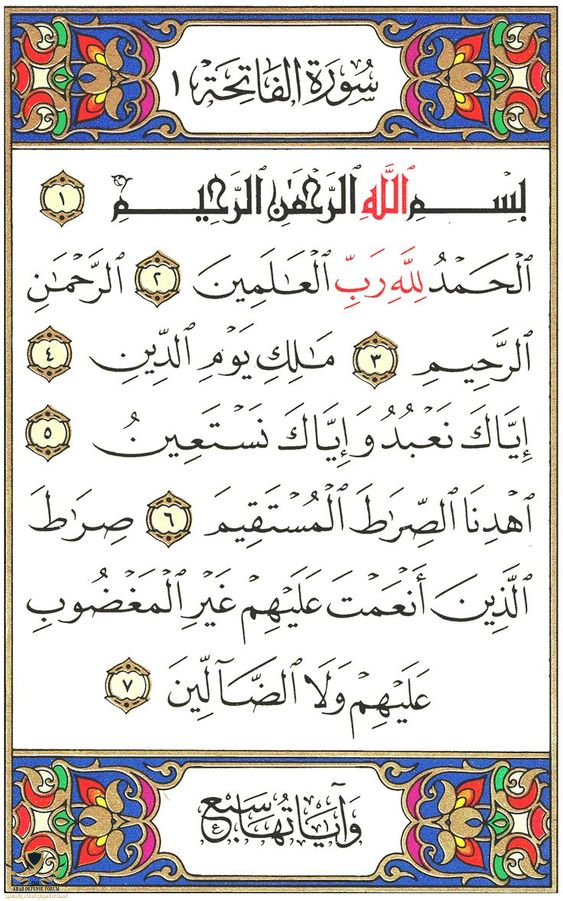 سُورَةُ الفَاتِحَة ١
بِسْمِ ٱللَّهِ ٱلرَّحْمَٰنِ ٱلرَّحِيمِ ١
ٱلْحَمْدُ لِلَّهِ رَبِّ ٱلْعَٰلَمِينَ ٢ ٱلرَّحْمَٰنِ
ٱلرَّحِيمِ ٣ مَٰلِكِ يَوْمِ ٱلدِّينِ ٤
إِيَّاكَ نَعْبُدُ وَإِيَّاكَ نَسْتَعِينُ ٥
ٱهْدِنَا ٱلصِّرَٰطَ ٱلْمُسْتَقِيمَ ٦ صِرَٰطَ
ٱلَّذِينَ أَنْعَمْتَ عَلَيْهِمْ غَيْرِ ٱلْمَغْضُوبِ
عَلَيْهِمْ وَلَا ٱلضَّآلِّينَ ٧
وَآيَاتُهَا سَبْع
ARAB DEFENSE FORUM